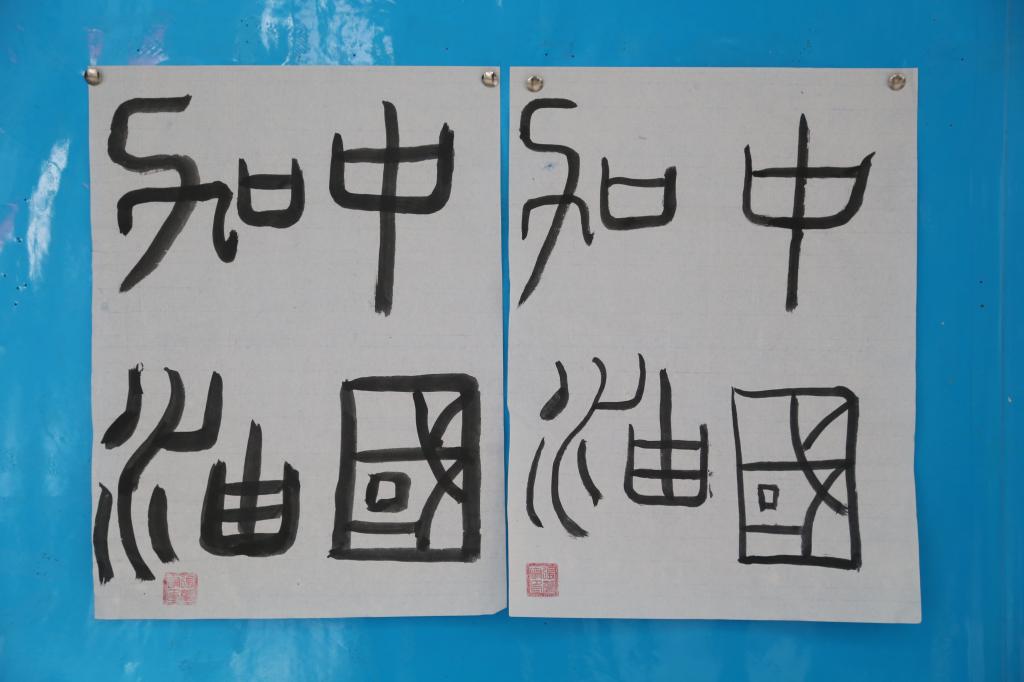 中國
加油
中國
加油